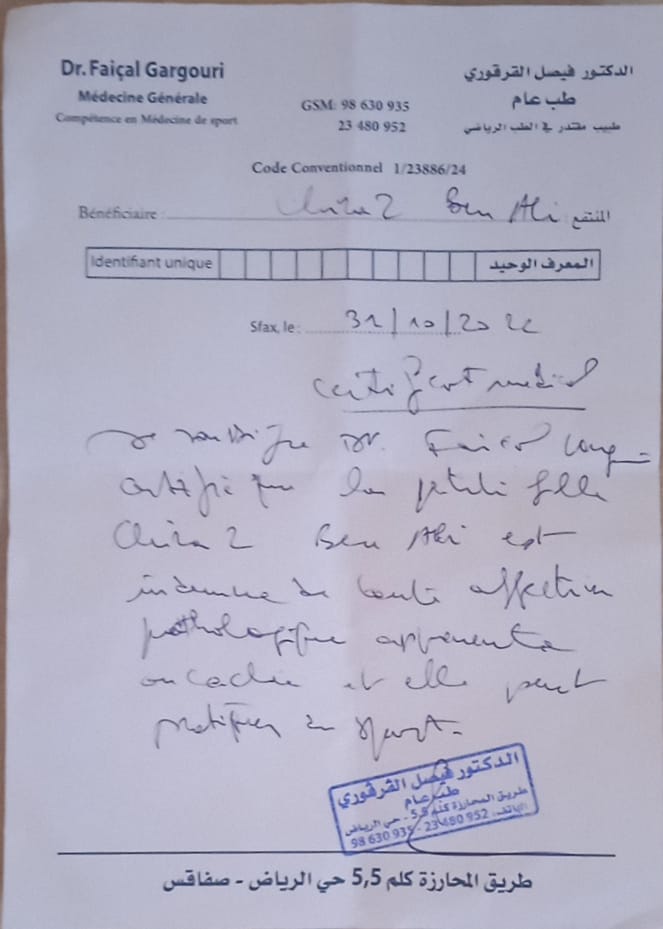 Dr. Faiçal Gargouri
Médecine Générale
Compétence en Médecine de sport
GSM: 98 630 935
23 480 952
الدكتور فيصل القرقوري
طب عام
طبيب مقتدر في الطب الرياضي
Code Conventionnel 1/23886/24
Bénéficiaire : Ben Ali المنتفع
Identifiant unique المعرف الوحيد
Sfax, le : 31/10/2022
certificat médical
Je soussigné Dr. Faiçal
certifie que la petite fille
Ben Ali est
indemne de toute affection
pathologique apparente
ou cachée et elle peut
pratiquer du sport.
الدكتور فيصل القرقوري
طب عام
طريق المحارزة كلم 5,5 - حي الرياض
الهاتف: 98 630 935 - 23 480 952
طريق المحارزة كلم 5,5 حي الرياض - صفاقس